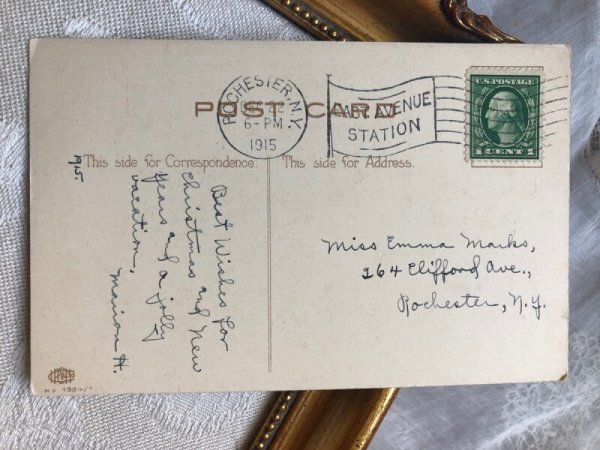 POST CARD
ROCHESTER, N.Y.
6-PM
1915
AVENUE
STATION
U.S. POSTAGE
1 CENT 1
This side for Correspondence.
This side for Address.
1915.
Best Wishes for
Christmas and New
Years and a jolly
vacation,
Marion H.
Miss Emma Marks,
264 Clifford Ave.,
Rochester, N.Y.